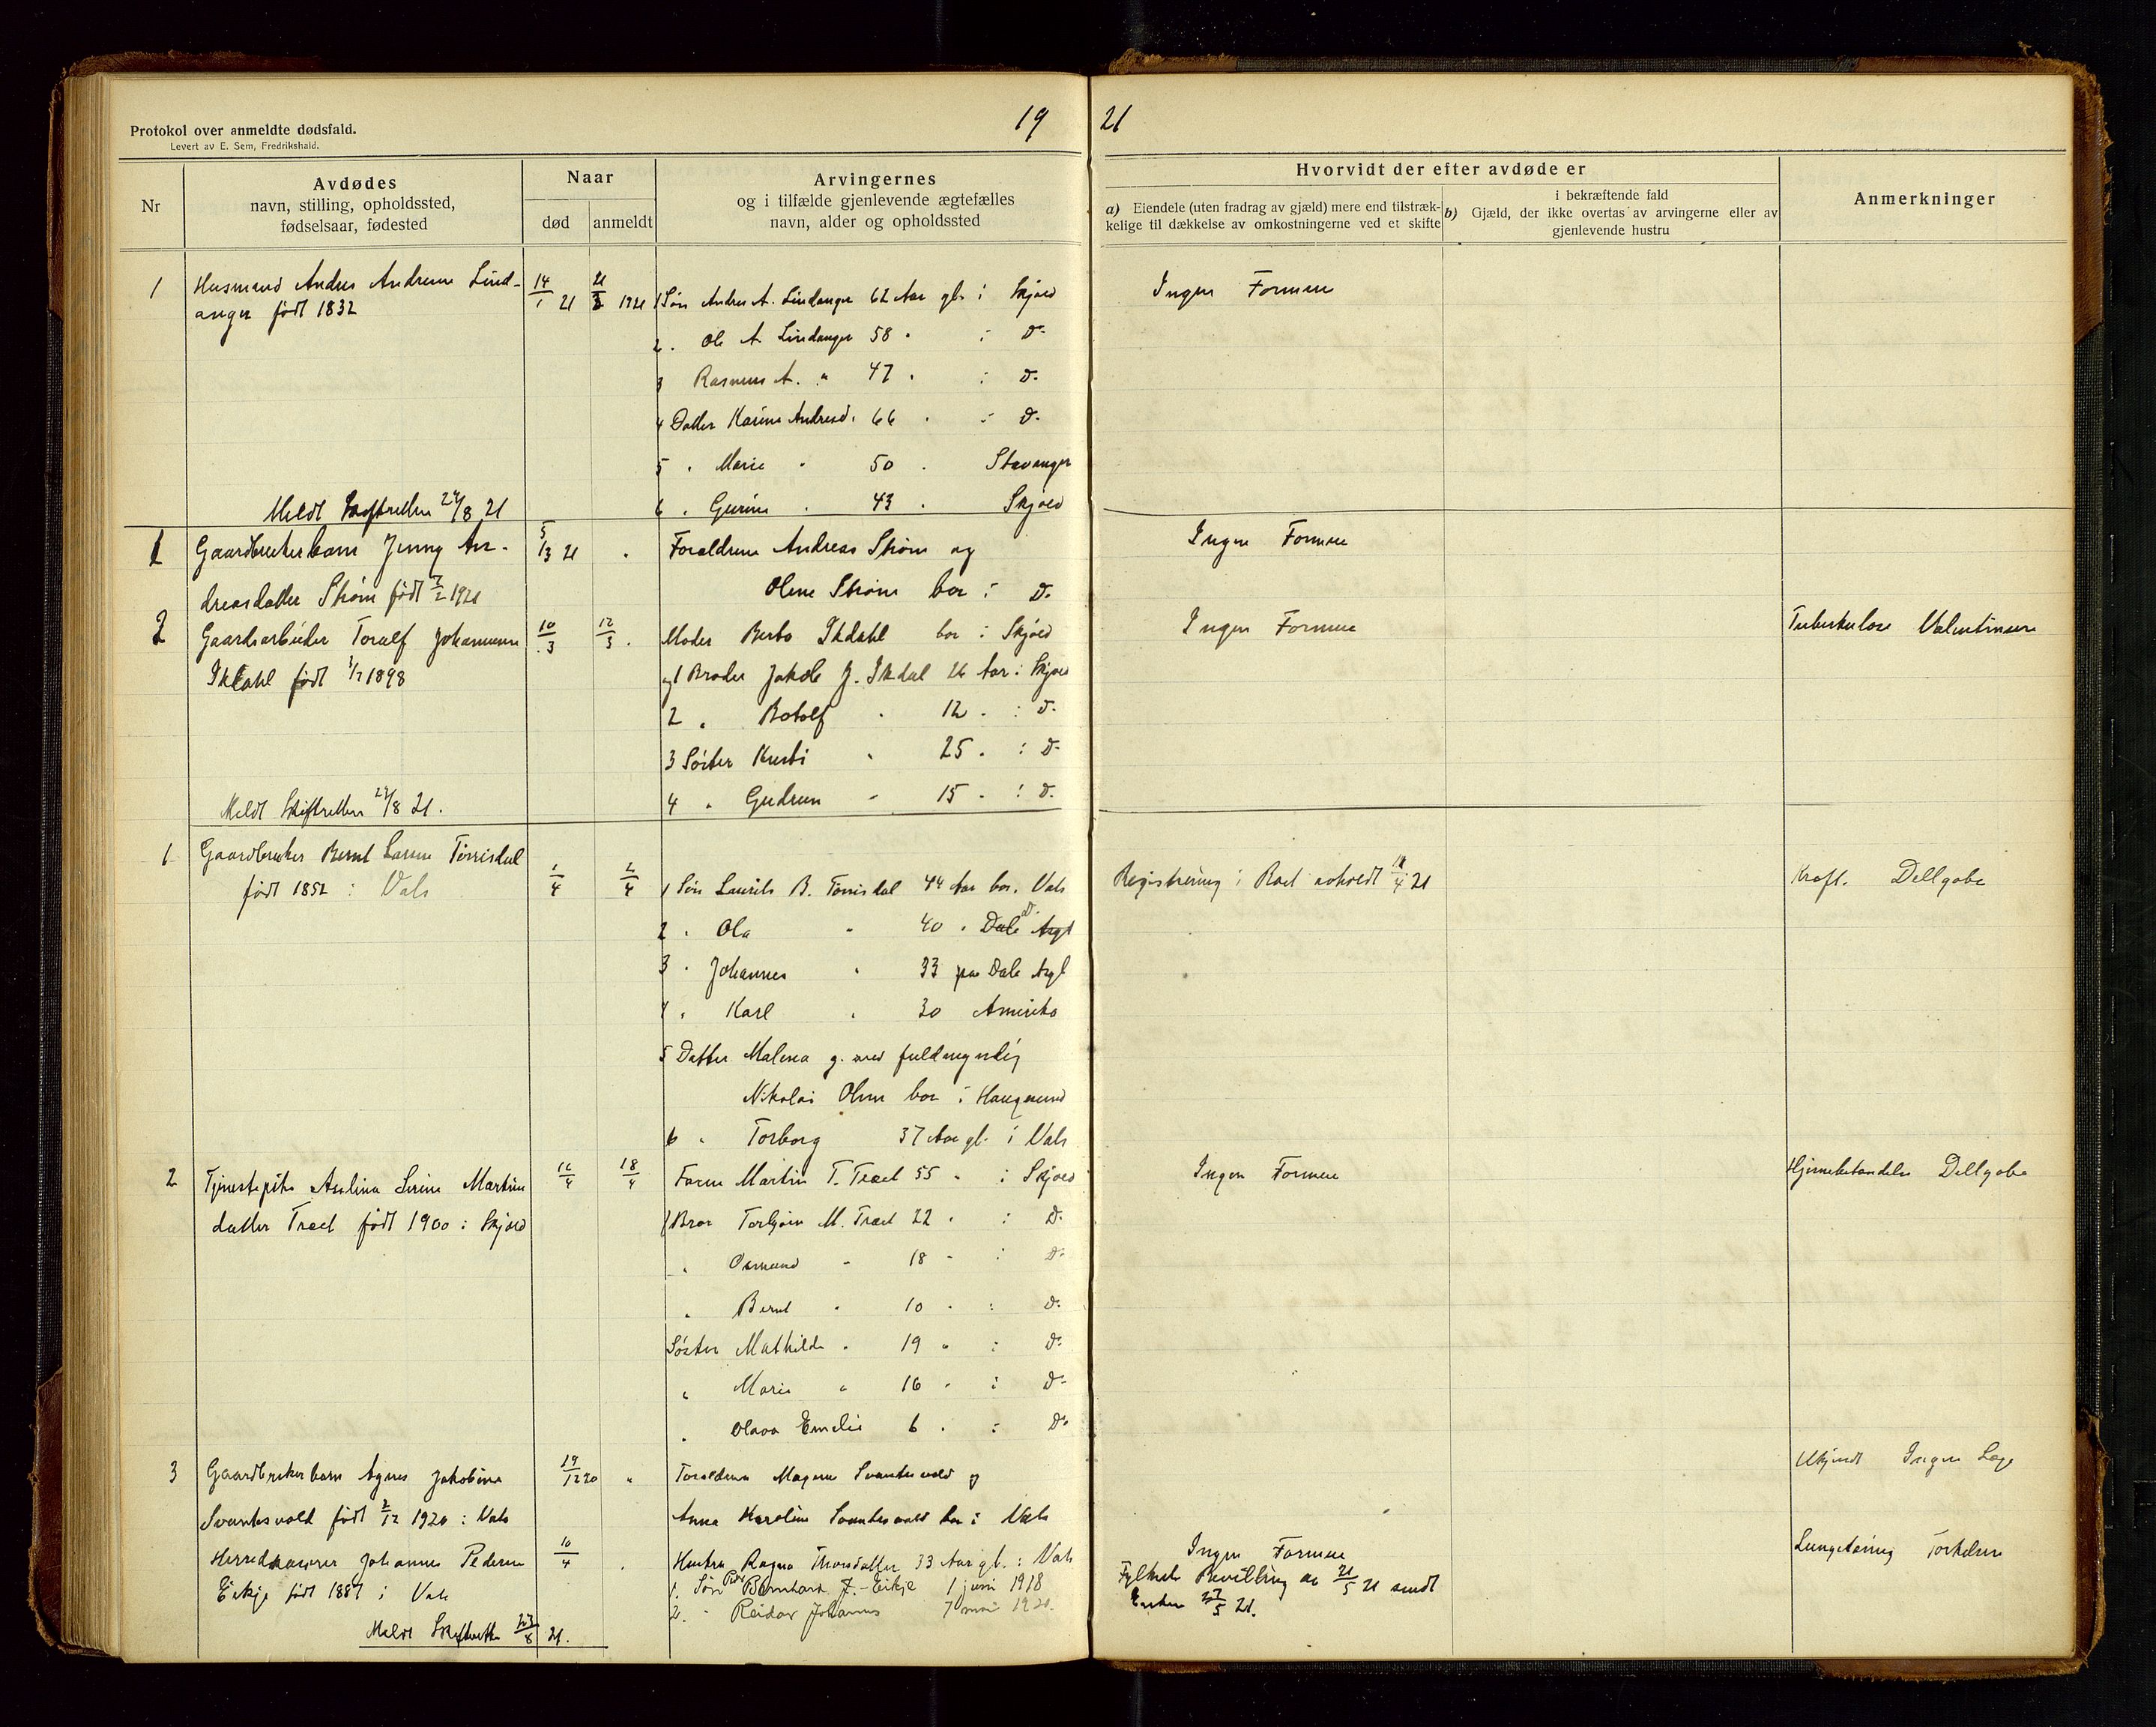 Protokol over anmeldte dødsfald.
Levert av E. Sem, Fredrikshald.
19 21
Nr
Avdødes
navn, stilling, opholdssted,
fødselsaar, fødested
Naar
død anmeldt
Arvingernes
og i tilfælde gjenlevende ægtefælles
navn, alder og opholdssted
Hvorvidt der efter avdøde er
a) Eiendele (uten fradrag av gjæld) mere end tilstræk-
kelige til dækkelse av omkostningerne ved et skifte
i bekræftende fald
b) Gjæld, der ikke overtas av arvingerne eller av
gjenlevende hustru
Anmerkninger
1 Husmand Andres Andresen Lind- 14/1 21 1921 1 Søn Andres A. Lindanger 62 Aar gb. i Skjold Ingen Formue
anger født 1832
2 . Ole A. Lindanger 58 . i D.
3 Rasmus A. " 47 . i D.
4 Datter Karine Andresd. 66 . i D.
5 . Marie . 50 . Stavanger
Meldt Skifteretten 24/8 21 6 . Gurine . 43 . Skjold
1 Gaardbrukerbarn Jenny An- 5/3 21 . Forældrene Andreas Strøm og Ingen Formue
dreasdatter Strøm født 7/2 1921 Oline Strøm bor i D.
2 Gaardsarbeider Toralf Johannesen 10/3 12/3 . Moder Berta Ikdahl bor i Skjold Ingen Formue Tuberkulose Valentinsen
Ikdahl født 1/7 1898 og 1 Broder Jakob J. Ikdal 26 Aar i Skjold
2 . Botolf . 12 . i D.
3 Søster Kirsti . 25 . i D.
Meldt Skifteretten 24/8 21. 4 . Gudrun . 15 . i D.
1 Gaardbruker Bernt Larsen Tørrisdal
født 1852 i Vats 1/4 2/4 1 Søn Laurits B. Tørrisdal 44 Aar bor. Vats Registrering i Boet avholdt 14/4 21 Kræft. Dellgobe
2 . Ola . 40 . Dale
3 . Johannes . 33 paa Dale
4 . Karl . 30 Amerika
5 Datter Malena g. med fuldmægtig
Nikolai Olsen bor i Haugesund
6 . Torborg 37 Aar gb. i Vats
2 Tjenestepike Anlina Serine Martins 16/4 18/4 Faren Martin T. Træet 55 . i Skjold Ingen Formue Hjernebetændelse Dellgobe
datter Træet født 1900 i Skjold 1 Bror Torbjørn M. Træet 22 . i D.
. Osmund . 18 . i D.
. Bernt . 10 . i D.
Søster Mathilde . 19 . i D.
. Marie . 16 . i D.
. Olava Emelie 6 . i D.
3 Gaardbrukerbarn Agnes Jakobine 19/12 20 . Forældrene Magnus Svantesvold og Ukjendt Ingen Læge
Svantesvold født 2/12 1920 i Vats Anna Karoline Svantesvold bor i Vats
Herredskasserer Johannes Pedersen 10/4 . Hustru Ragna Thorsdatter 33 Aar gb. i Vats Ingen Formue Lungetæring Torkelsen
Eikje født 1887 i Vats 1. Søn Peder Bernhard J. Eikje 1 juni 1918 Fylkets Bevilling av 21/5 21 sendt
2. " Reidar Johannes 7 mai 1920. Enken 27/5 21.
Meldt Skifteretten 23/8 21.